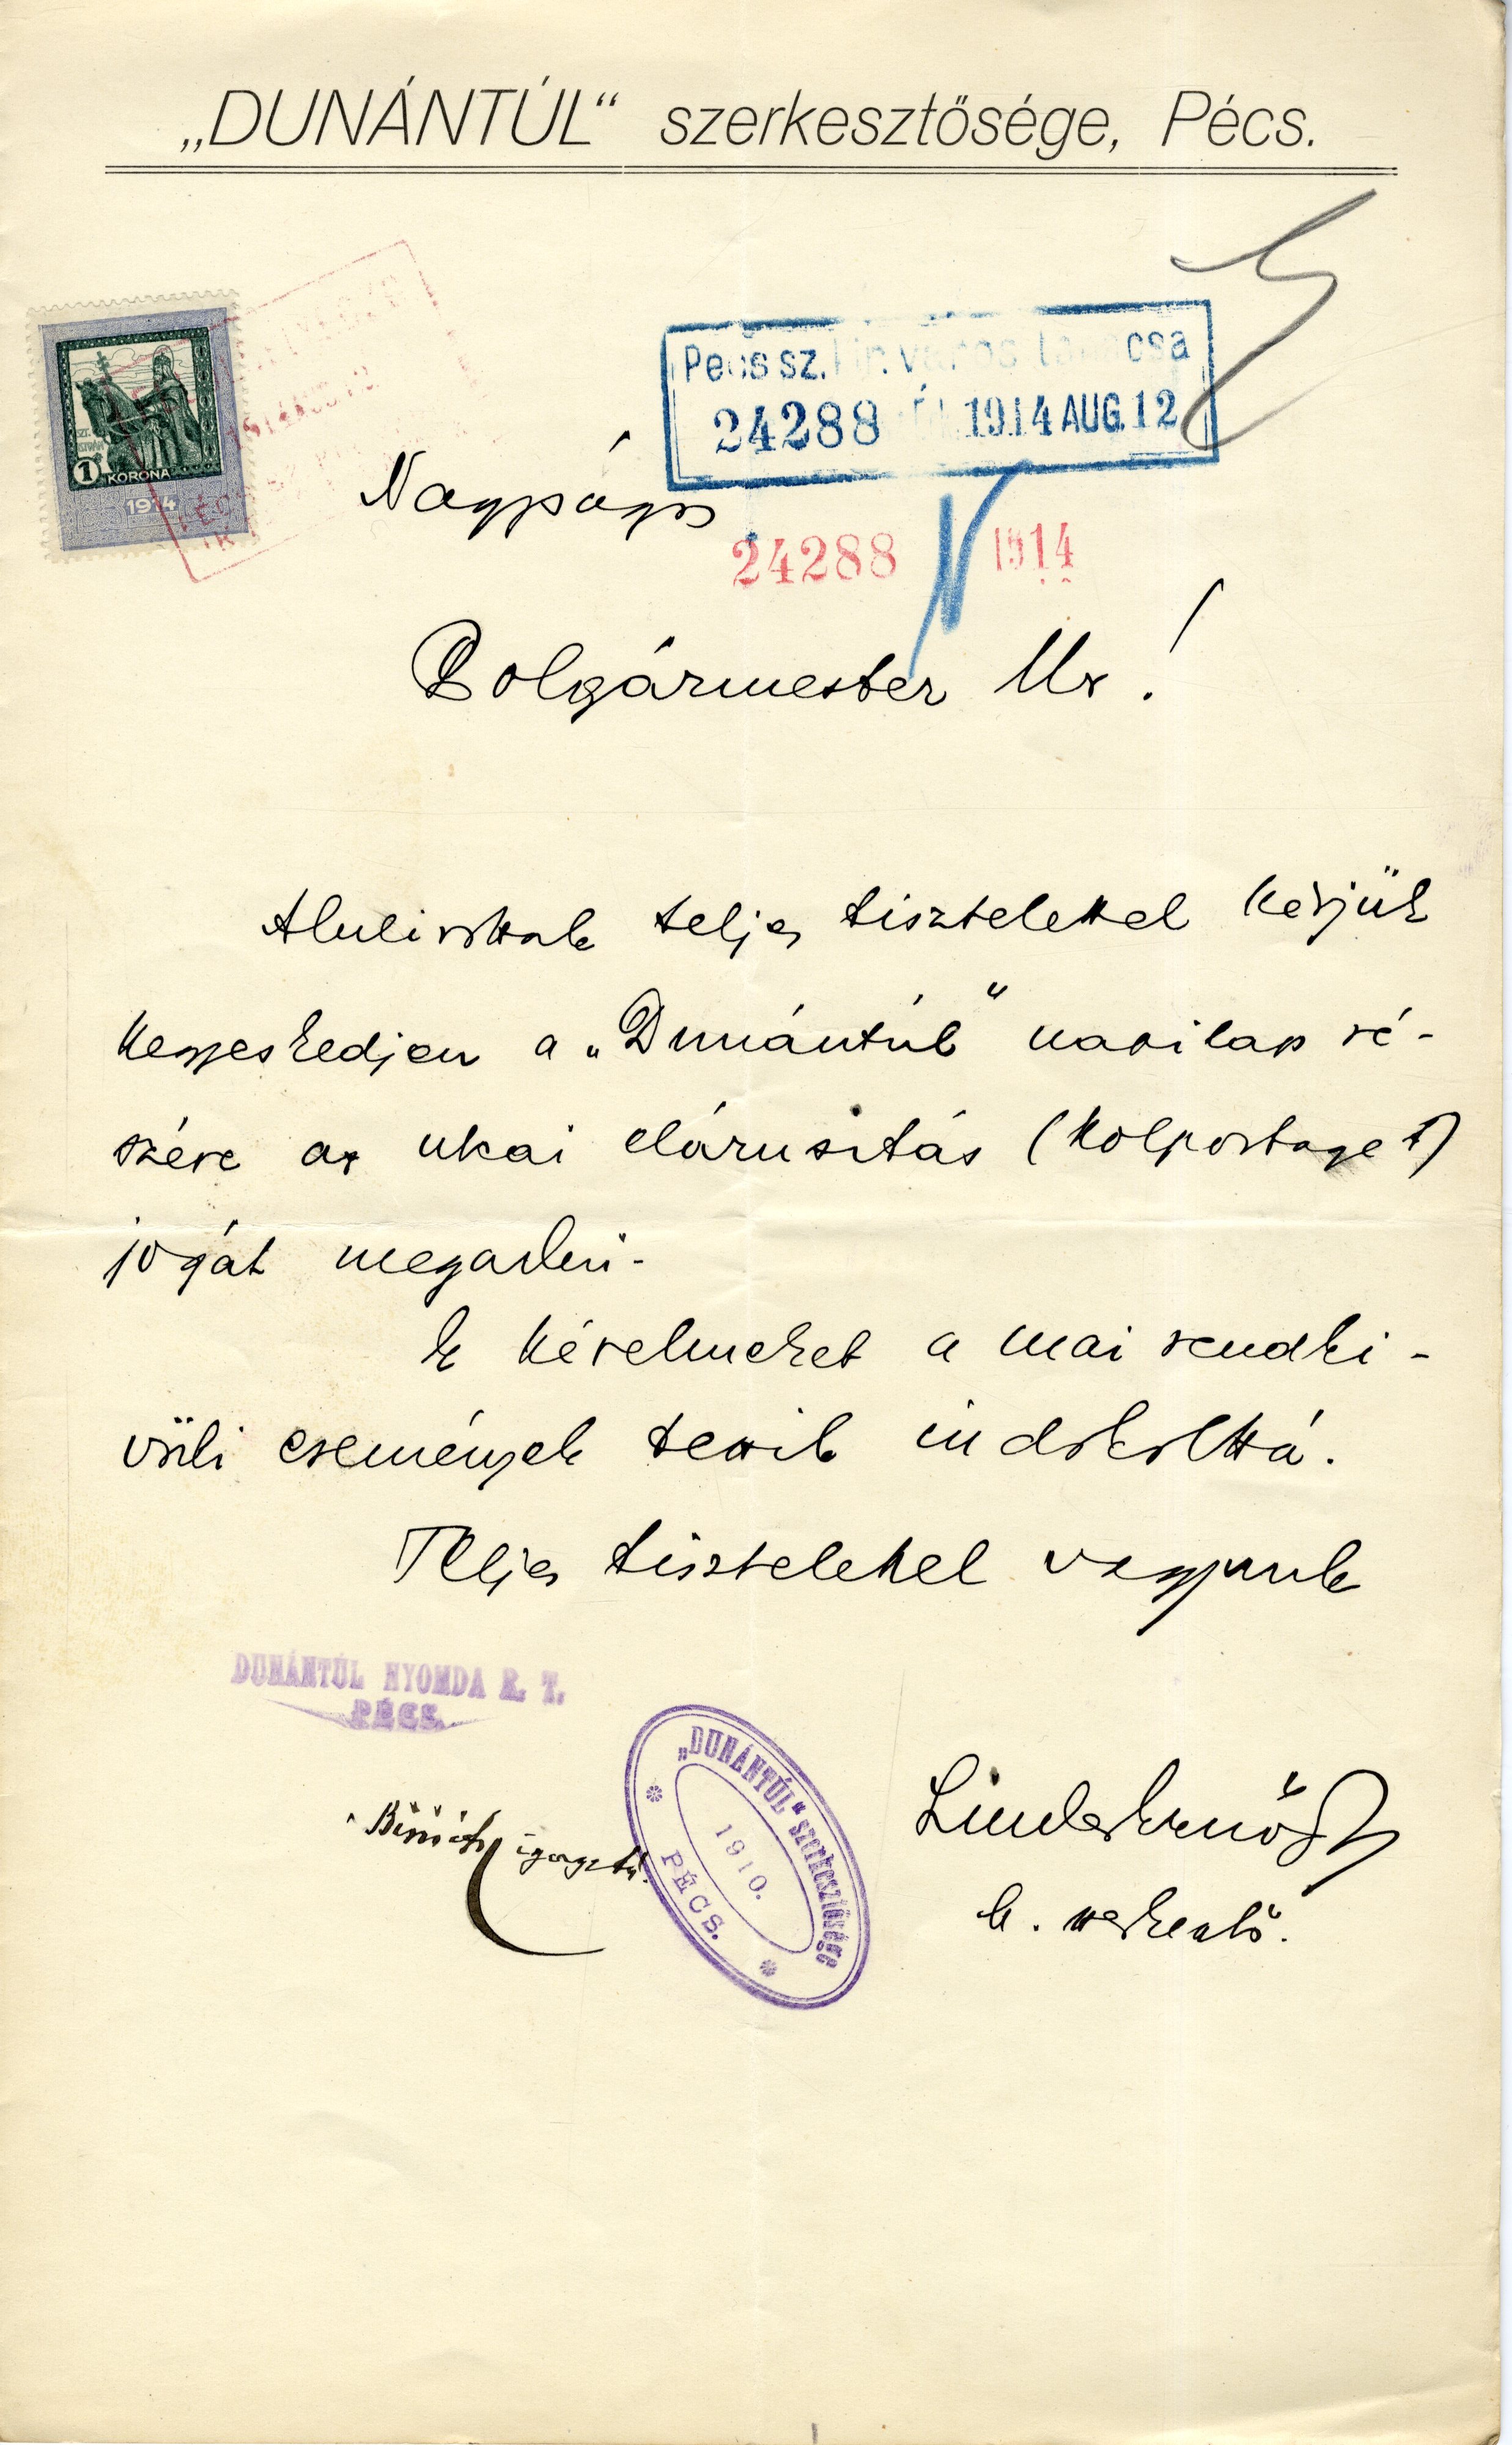 „DUNÁNTÚL“ szerkesztősége, Pécs.
1 KORONA
1914
Pécs sz. kir. város tanácsa
24288 1914 AUG. 12
Nagyságos
24288 1914
Polgármester Ur!
Alulirottak teljes tisztelettel kérjük
kegyeskedjen a „Dunántúl“ napilap ré-
szére az utcai elárusitás (kolportaget)
jogát megadni.
E kérelmeket a mai rendki-
vüli események teszik indokolttá.
Teljes tisztelettel vagyunk
DUNÁNTÚL NYOMDA R. T.
PÉCS.
„DUNÁNTÚL“ szerkesztősége
1910.
PÉCS.
igazgató.
Linder Ernő
h. szerkesztő.